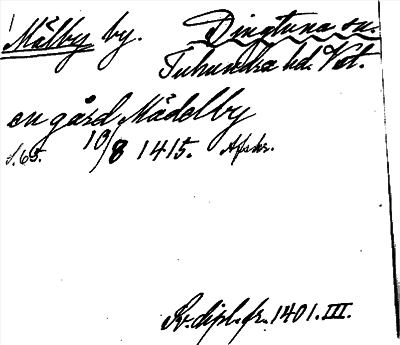 Målby by. Dingtuna sn.
Tuhundra hd. Vst.
en gård Mädelby
s. 65. 10/8 1415. Afskr.
Sv. dipl. fr. 1401. III.